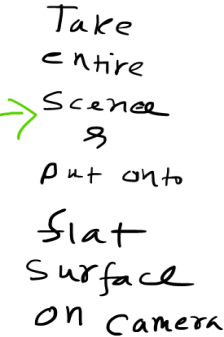 Take
entire
Scence
&
put onto
flat
surface
on camera